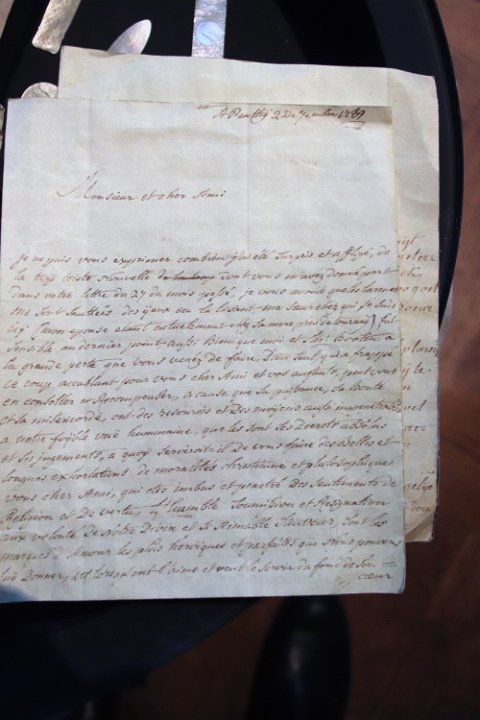 2 De 7embre 1789
Monsieur et cher Ami
Je ne puis vous exprimer combien j'ai été surpris et affligé, de
la trop triste Nouvelle de dont vous m'avez donné part
dans votre lettre du 27 du mois passé, je vous avoue que les larmes
me sont sauttées des yeux en la lisant, ma sœur chez qui je suis
ici (mon eponse etant actuellement chez sa mere pres de ) fut
sensible au dernier point aussi bien que moi et Mr a
la grande perte que vous venez de faire, Dieu seul qui a frappé
ce coup accablant pour vous cher Ami et vos enfants, peut vous
en consoller et Recompenser, a cause que sa puissance, sa Bonté
et sa misericorde, ont des resources et Des moyens aussi impenetrables
a notre foible vuë humaine, que les sont ses Decrets absolus
et ses jugements, a quoy serviroit il De vous faire des belles et
longues exhortations de moralités chrestienne et philosophiques
vous cher Ami, qui etes imbus et penetré Des sentiments de
Religion et De vertu, d'humble soumition et Resignation
aux volonté de Notre Divin et si Aimable Sauveur, dont les
marques d'Amour les plus heroiques et parfaites que Nous pouvons
lui Donner, est lorsqu'ont l'aime et veut le servir du fond de son
cœur